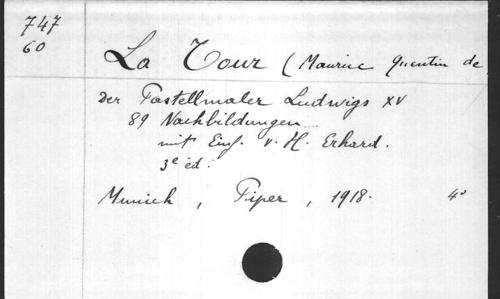 747
60
La Tour (Maurice Quentin de
Der Pastellmaler Ludwigs XV
89 Nachbildungen ...
mit Einf. v. H. Erhard.
3e ed.
Munich, Piper, 1918. 4°